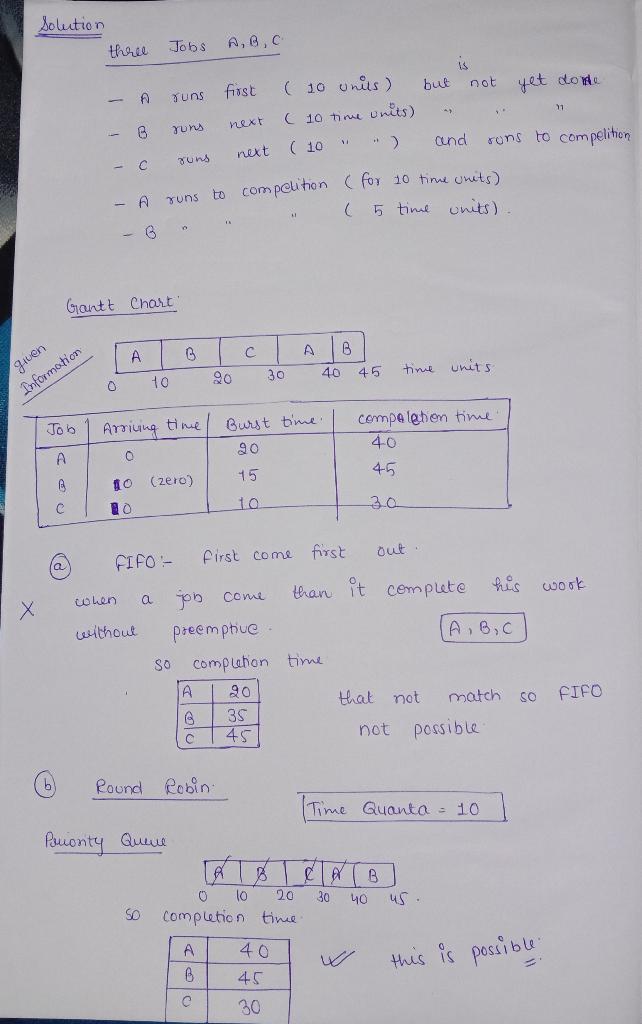 Solution
three Jobs A, B, C
is
- A runs first ( 10 units ) but not yet done
- B runs next ( 10 time units) " " "
- C runs next ( 10 " " ) and runs to compelition
- A runs to compelition ( for 10 time units)
- B " " " ( 5 time units ) .
Gantt Chart:
given Information
A B C A B
0 10 20 30 40 45 time units
Job Arriving time Burst time. compeletion time
A 0 20 40
B 0 (zero) 15 45
C 0 10 30
(a) FIFO :- First come first out .
X when a job come than it complete his work
without preemptive . A, B, C
so completion time
A 20 that not match so FIFO
B 35 not possible
C 45
(b) Round Robin.
Time Quanta = 10
Priority Queue
A B C A B
0 10 20 30 40 45 .
so completion time
A 40 this is possible.
B 45
C 30